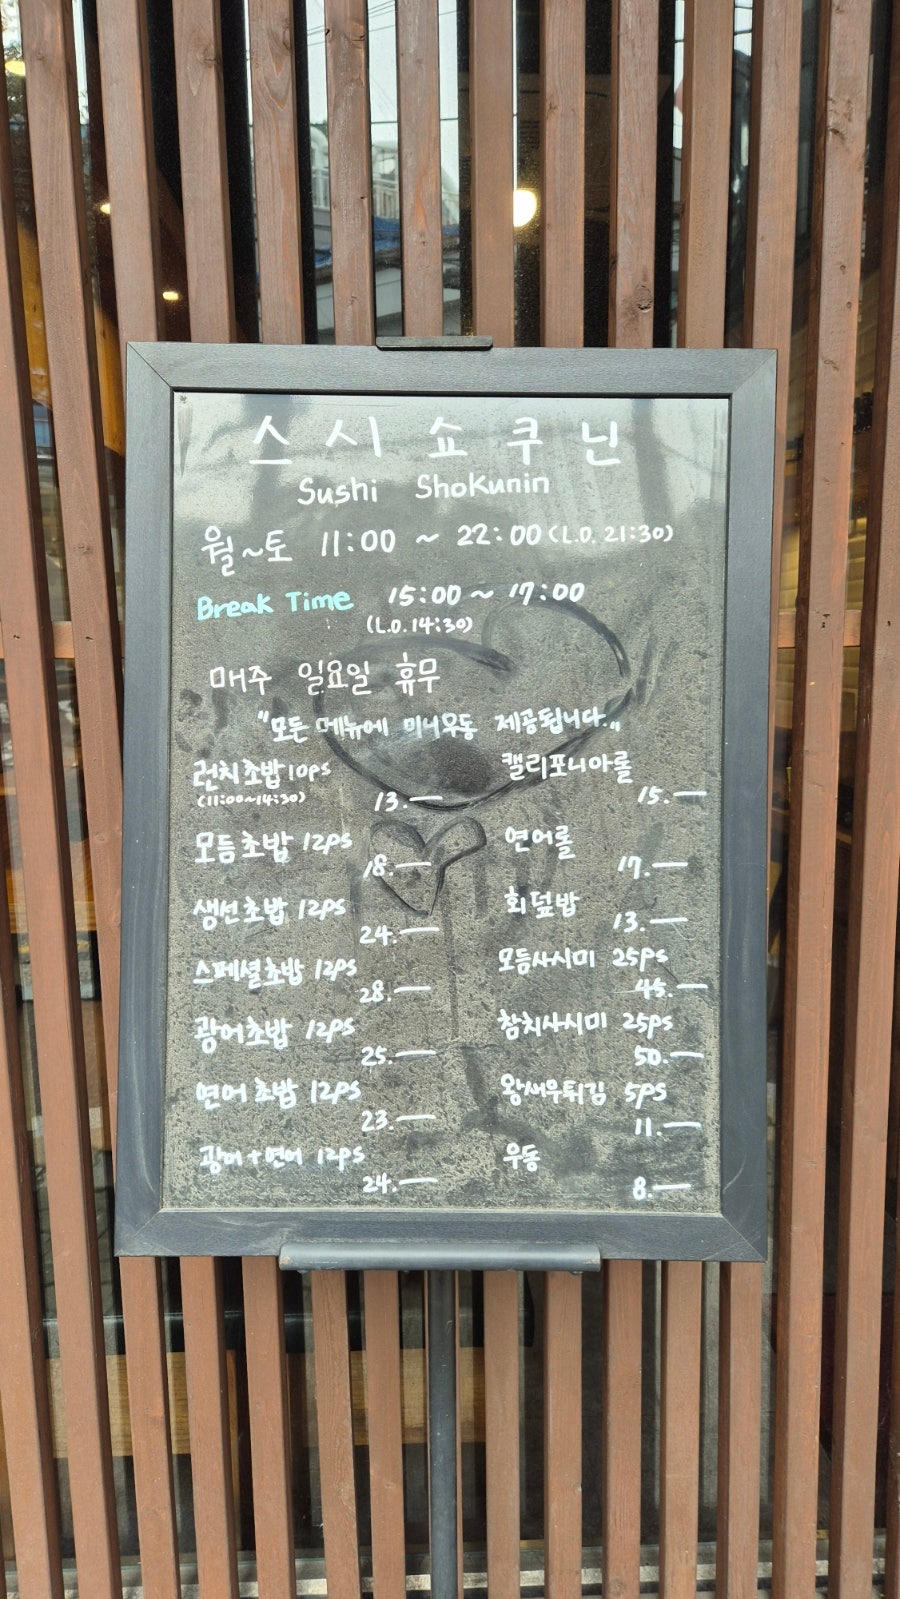 스시쇼쿠닌
Sushi Shokunin
월~토 11:00 ~ 22:00 (L.O. 21:30)
Break Time 15:00 ~ 17:00
(L.O. 14:30)
매주 일요일 휴무
"모든 메뉴에 미니우동 제공됩니다."
런치초밥 10ps
(11:00~14:30)
13.—
모듬초밥 12ps
18.—
생선초밥 12ps
24.—
스페셜초밥 12ps
28.—
광어초밥 12ps
25.—
연어초밥 12ps
23.—
광어+연어 12ps
24.—
캘리포니아롤
15.—
연어롤
17.—
회덮밥
13.—
모듬사시미 25ps
45.—
참치사시미 25ps
50.—
왕새우튀김 5ps
11.—
우동
8.—